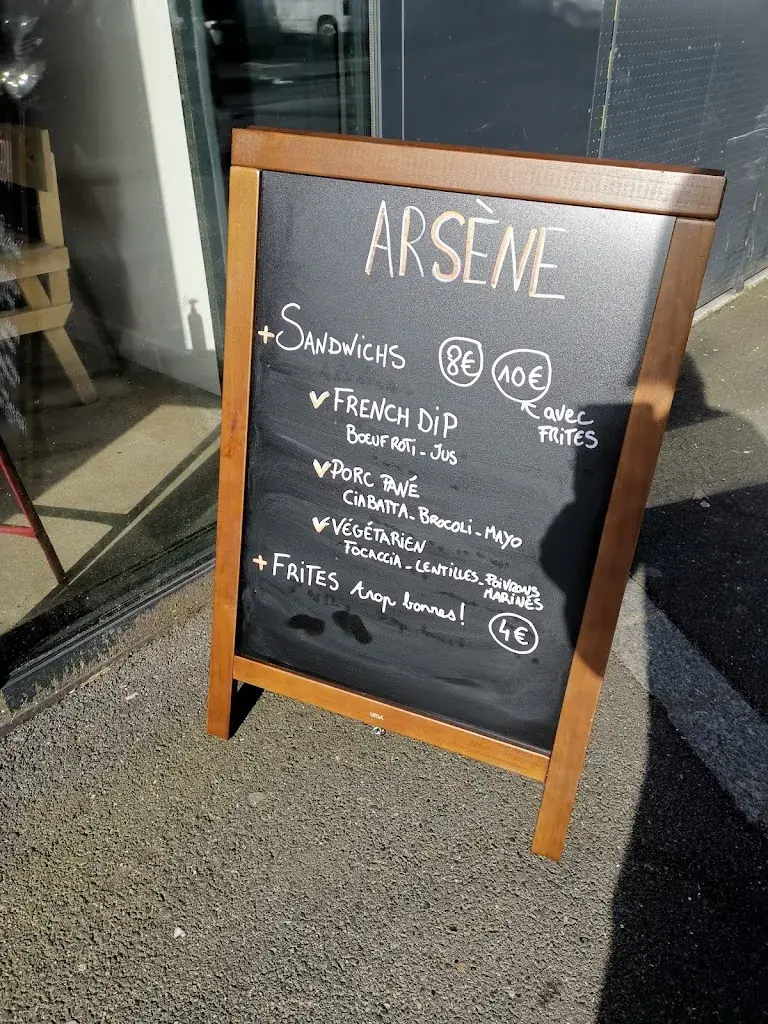 ARSÈNE
+ SANDWICHS 8€ 10€
avec
FRITES
FRENCH DIP
BŒUF ROTI - JUS
PORC PANÉ
CIABATTA - BROCOLI - MAYO
VÉGÉTARIEN
FOCACCIA - LENTILLES - POIVRONS
MARINÉS
+ FRITES trop bonnes!
4€